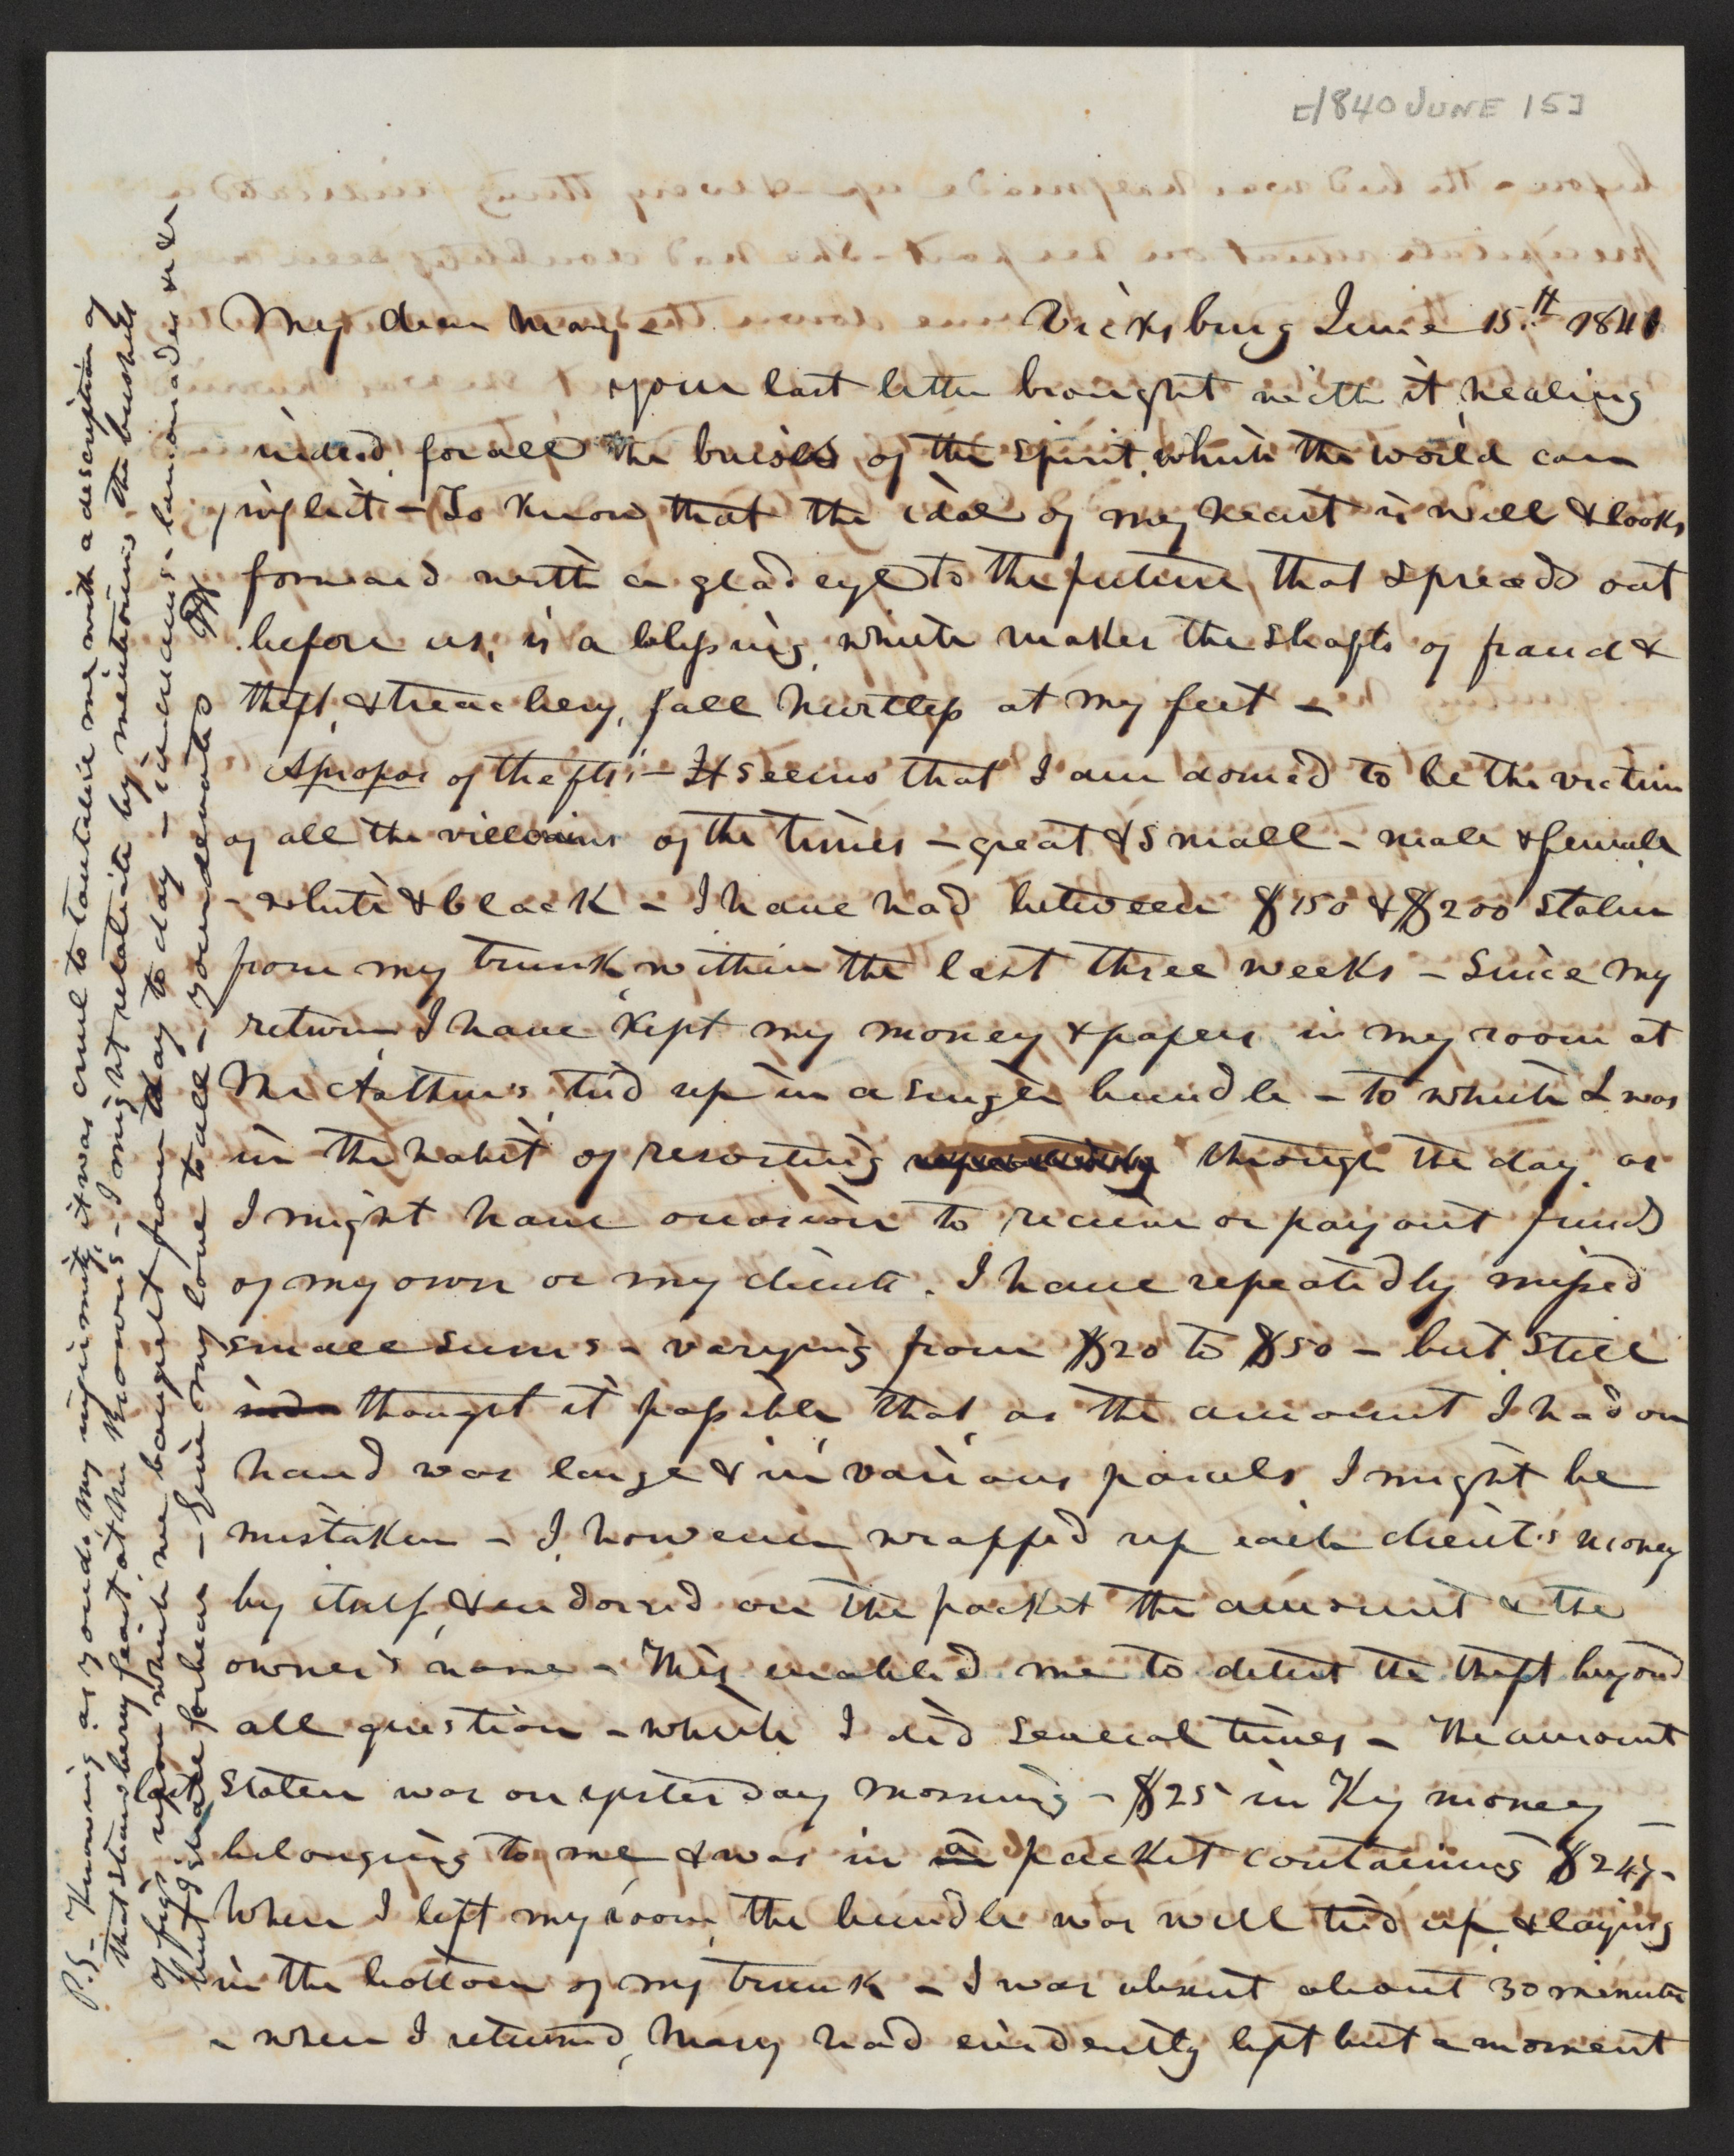 [1840 JUNE 15]
My dear Mary - Vicksburg June 15th 1841
your last letter brought with it, healing
indeed, for all the bruises of the spirit, which the world can
inflict - To know, that the idol of my heart is well & looks
forward with a glad eye to the future, that spreads out
before us, is a blessing, which makes the shafts of fraud &
theft, & treachery, fall hurtless at my feet -
Apropos of thefts - It seems that I am domed to be the victim
of all the villains of the times - great & small - male & female
- white & black - I have had between $150 & $200 stolen
from my trunk, within the last three weeks - Since my
return I have kept my money & papers in my room at
tied up in a single bundle - to which I was
in the habit of resorting through the day, as
I might have occasion to receive or pay out funds
of my own or my clients. I have repeatedly missed
small sums - varying from $20 to $50 - but still
thought it possible, that, as the amount I had on
hand was large & in various parcels I might be
mistaken - I, however wrapped up each client's money
by itself, & endorsed on the packet the amount & the
owner's name - This enabled me to detect the theft beyond
all question - which I did several times - The amount
last stolen was on yesterday morning - $25 in Ky money -
belonging to me & was in a packet containing $247 -
When I left my room, the bundle was well tied up, & laying
in the bottom of my trunk - I was absent about 30 minutes
- when I returned, Mary had evidently left but a moment
P.S - Knowing as you do, my infirmity, it was cruel to tantalise me with a description of
that strawberry feast, at the Browns - I might retaliate by mentioning the bushels
of figs upon which we banquet from day to day - ice creams - lemonades &c &c
but I shall forbear - Give my love to all - your devoted